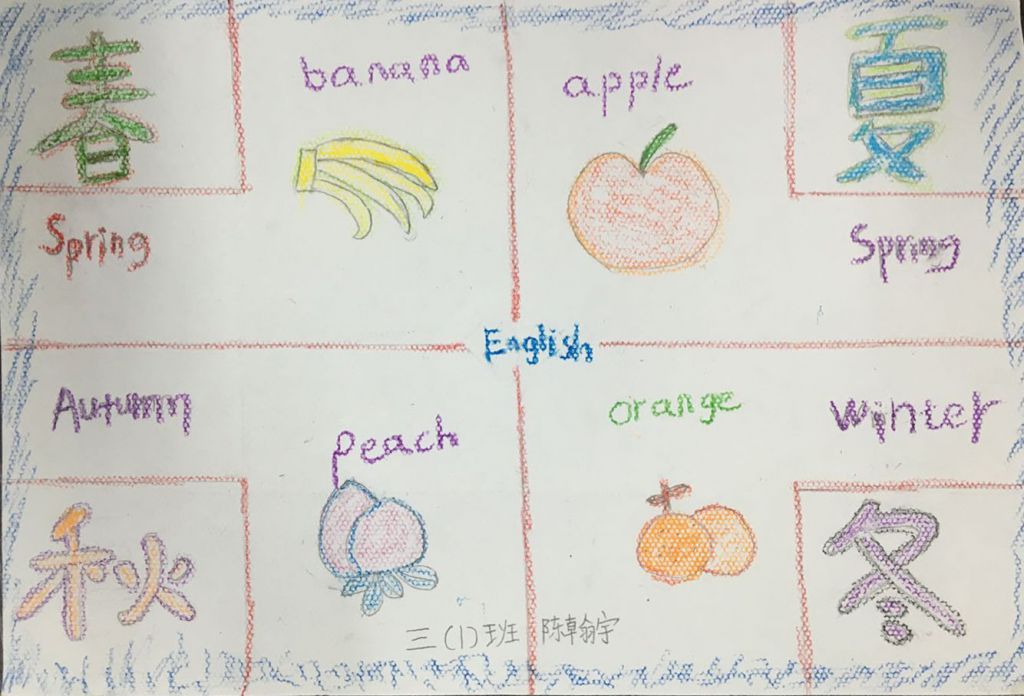 春
banana
apple
夏
Spring
Spring
English
Autumn
peach
orange
winter
秋
冬
三(1)班 陈卓翁宇